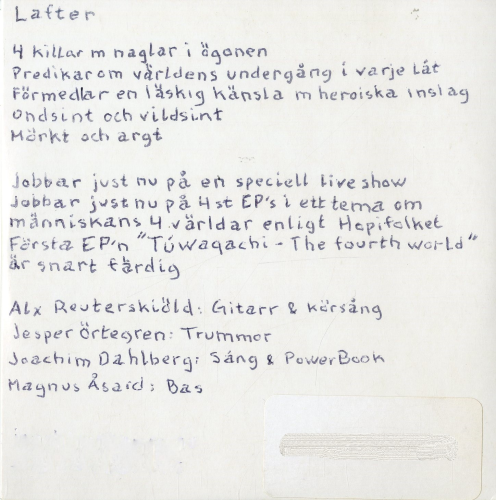 Lafter
4 killar m naglar i ögonen
Predikar om världens undergång i varje låt
Förmedlar en läskig känsla m heroiska inslag
Ondsint och vildsint
Mörkt och argt
Jobbar just nu på en speciell liveshow
Jobbar just nu på 4 st EP's i ett tema om
människans 4 världar enligt Hopifolket
Första EP'n "Túwaqachi - The fourth world"
är snart färdig
Alx Reuterskiöld: Gitarr & körsång
Jesper Örtegren: Trummor
Joachim Dahlberg: Sång & PowerBook
Magnus Åsard: Bas